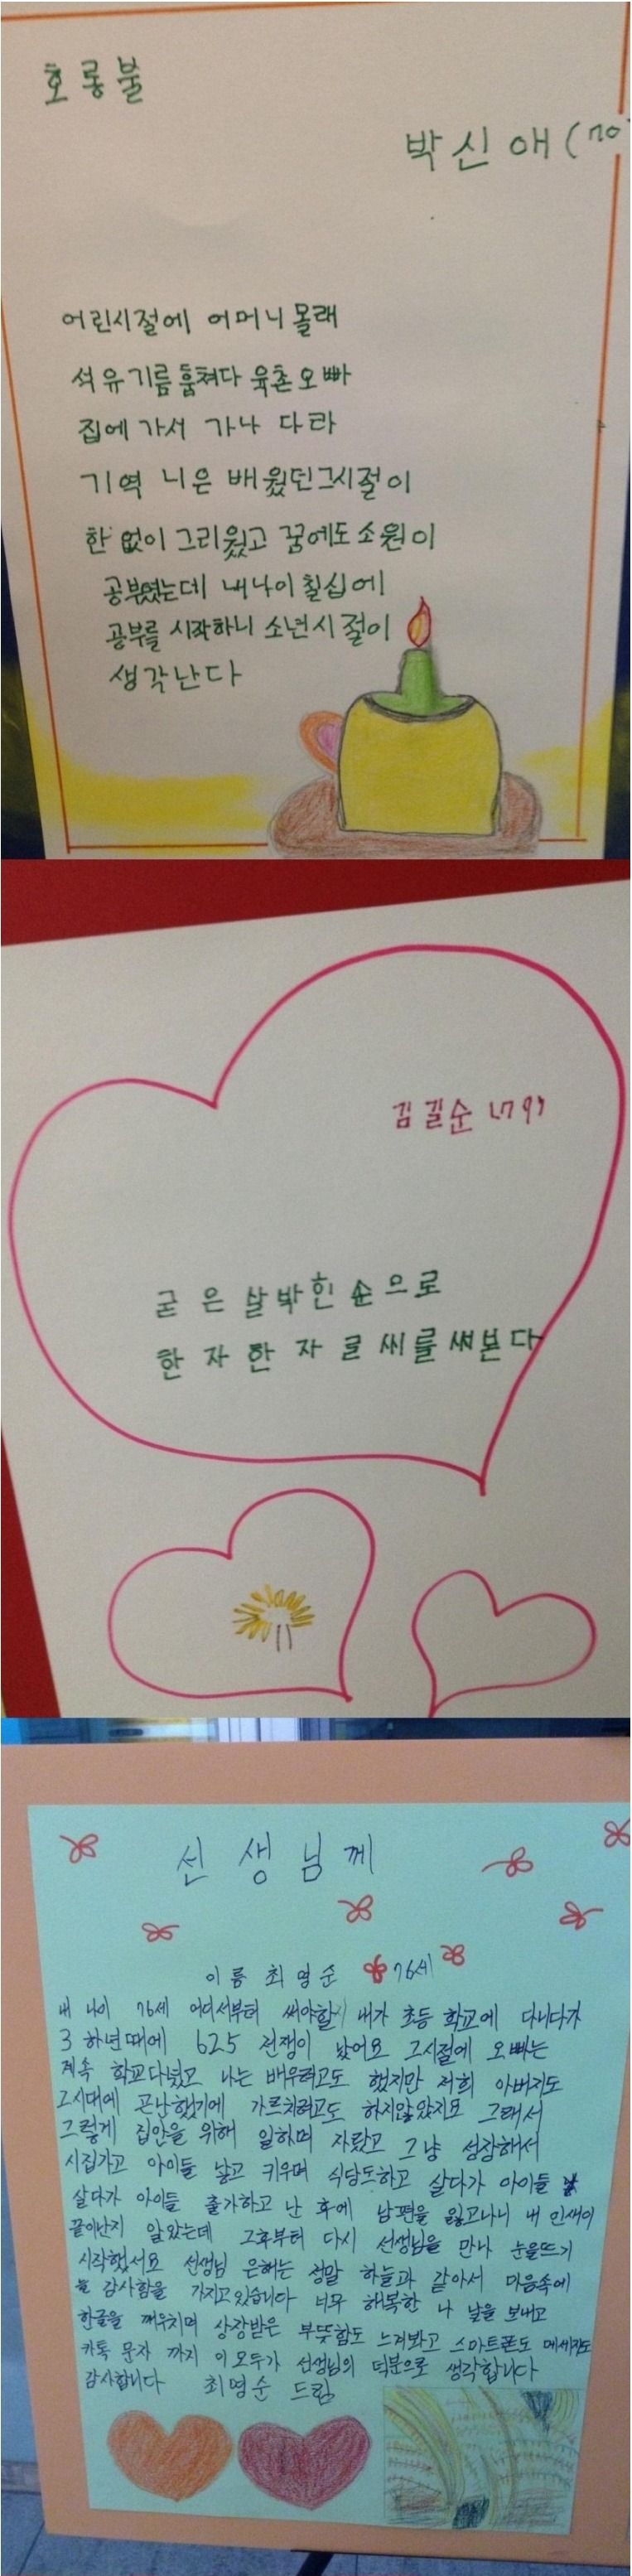 호롱불
박신애(70
어린시절에 어머니몰래
석유기름훔쳐다 육촌오빠
집에가서 가나 다라
기역 니은 배웠던그시절이
한없이 그리웠고 꿈에도소원이
공부였는데 내나이칠십에
공부를 시작하니 소년시절이
생각난다
김길순(79)
굳은살박힌손으로
한자한자글씨를써본다
선생님께
이름 최영순 76세
내 나이 76세 어디서부터 써야할지 내가 초등 학교에 다니다가
3 하년때에 625 전쟁이 났어요 그시절에 오빠는
계속 학교다녔고 나는 배우려고도 했지만 저희 아버지도
그시대에 곤난했기에 가르치려고도 하지않았지요 그래서
그렇게 집안을 위해 일하며 자랐고 그냥 성장해서
시집가고 아이들 낳고 키우며 식당도하고 살다가 아이들
살다가 아이들 출가하고 난 후에 남편을 잃고나니 내 인생이
끝이난지 알았는데 그후부터 다시 선생님을 만나 눈을뜨기
시작했서요 선생님 은혜는 정말 하늘과 같아서 마음속에
감사함을 가지고있습니다 너무 행복한 나 날을 보내고
한글을 깨우치며 상장받은 부뜻함도 느껴봤고 스마트폰도 메세지도
카톡 문자 까지 이모두가 선생님의 덕분으로 생각합니다
감사합니다 최영순 드림